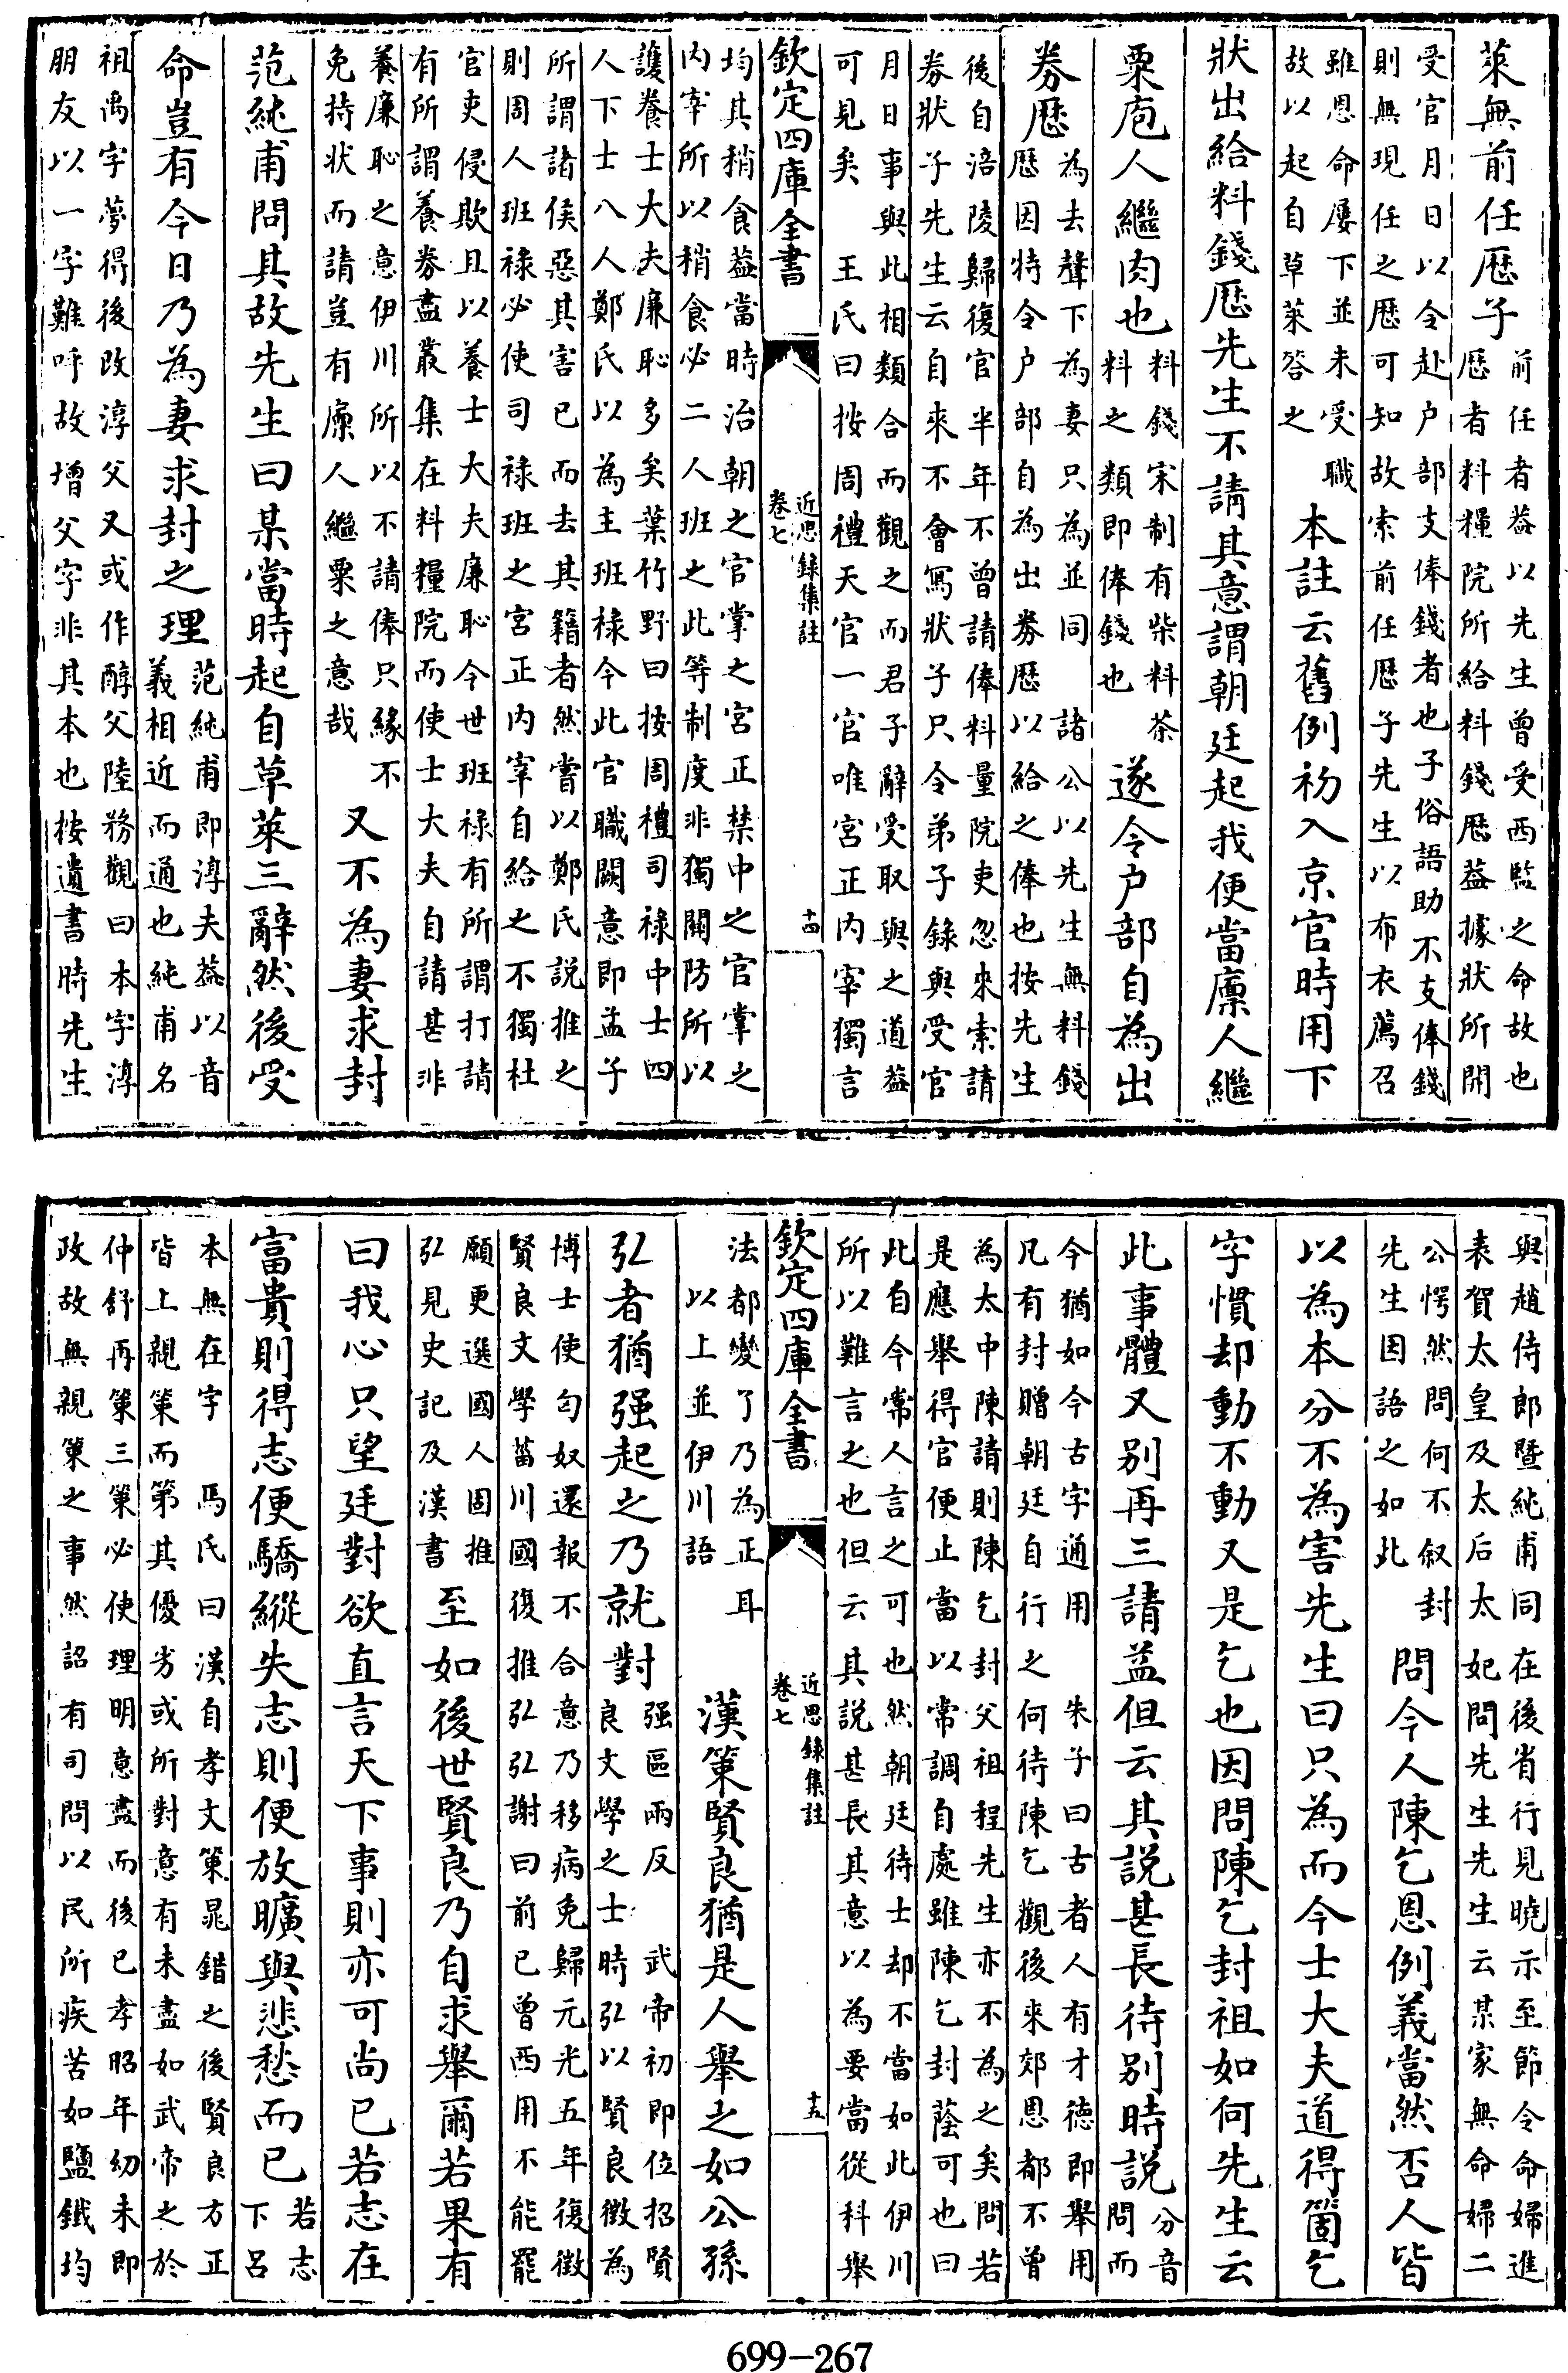 萊無前任歷子前任者葢以先生曾受西監之命故也
歷者料糧院所給料錢歷葢據狀所開
受官月日以令赴户部支俸錢者也子俗語助不支俸錢
則無現任之歷可知故索前任歷子先生以布衣薦召
雖恩命屢下並未受職
故以起自草萊答之本註云舊例初入京官時用下
狀出給料錢歷先生不請其意謂朝廷起我便當廪人繼
粟庖人繼肉也料錢宋制有柴料茶
料之類即俸錢也遂令户部自為出
券歷為去聲下為妻只為並同 諸公以先生無料錢
歷因特令户部自為出券歷以給之俸也按先生
後自涪陵歸復官半年不曾請俸料量院吏忽來索請
券狀子先生云自來不會寫狀子只令弟子錄與受官
月日事與此相類合而觀之而君子辭受取與之道葢
可見矣 王氏曰按周禮天官一官唯宮正内宰獨言
欽定四庫全書
近思錄集註
卷七
十四
均其稍食葢當時治朝之官掌之宮正禁中之官掌之
内宰所以稍食必二人班之此等制度非獨關防所以
䕶養士大夫廉恥多矣葉竹野曰按周禮司祿中士四
人下士八人鄭氏以為主班祿今此官職闕意即孟子
所謂諸侯惡其害已而去其籍者然嘗以鄭氏説推之
則周人班祿必使司祿班之宮正内宰自給之不獨杜
官吏侵欺且以養士大夫廉恥今世班祿有所謂打請
有所謂養券盡叢集在料糧院而使士大夫自請甚非
養廉恥之意伊川所以不請俸只緣不
免持状而請豈有廪人繼粟之意哉又不為妻求封
范純甫問其故先生曰某當時起自草萊三辭然後受
命豈有今日乃為妻求封之理范純甫即淳夫葢以音
義相近而通也純甫名
祖禹字夢得後改淳父又或作醇父陸務觀曰本字淳
朋友以一字難呼故增父字非其本也按遺書時先生
與趙侍郎暨純甫同在後省行見曉示至節令命婦進
表賀太皇及太后太妃問先生先生云某家無命婦二
公愕然問何不叙封
先生因語之如此問今人陳乞恩例義當然否人皆
以為本分不為害先生曰只為而今士大夫道得箇乞
字慣却動不動又是乞也因問陳乞封祖如何先生云
此事體又别再三請益但云其説甚長待别時説分音
問而
今猶如今古字通用 朱子曰古者人有才德即舉用
凡有封贈朝廷自行之何待陳乞觀後來郊恩都不曾
為太中陳請則陳乞封父祖程先生亦不為之矣問若
是應舉得官便止當以常調自處雖陳乞封蔭可也曰
此自今常人言之可也然朝廷待士却不當如此伊川
所以難言之也但云其説甚長其意以為要當從科舉
欽定四庫全書
近思錄集註
卷七
十五
法都變了乃為正耳
以上並伊川語漢策賢良猶是人舉之如公孫
弘者猶强起之乃就對强區兩反 武帝初即位招賢
良文學之士時弘以賢良徴為
博士使匈奴還報不合意乃移病免歸元光五年復徴
賢良文學菑川國復推弘弘謝曰前已曾西用不能罷
願更選國人固推
弘見史記及漢書至如後世賢良乃自求舉爾若果有
曰我心只望廷對欲直言天下事則亦可尚已若志在
富貴則得志便驕縱失志則便放曠與悲愁而已若志
下吕
本無在字 馬氏曰漢自孝文策晁錯之後賢良方正
皆上親策而第其優劣或所對意有未盡如武帝之於
仲舒再策三策必使理明意盡而後已孝昭年幼未即
政故無親策之事然詔有司問以民所疾苦如鹽鐵均
699-267